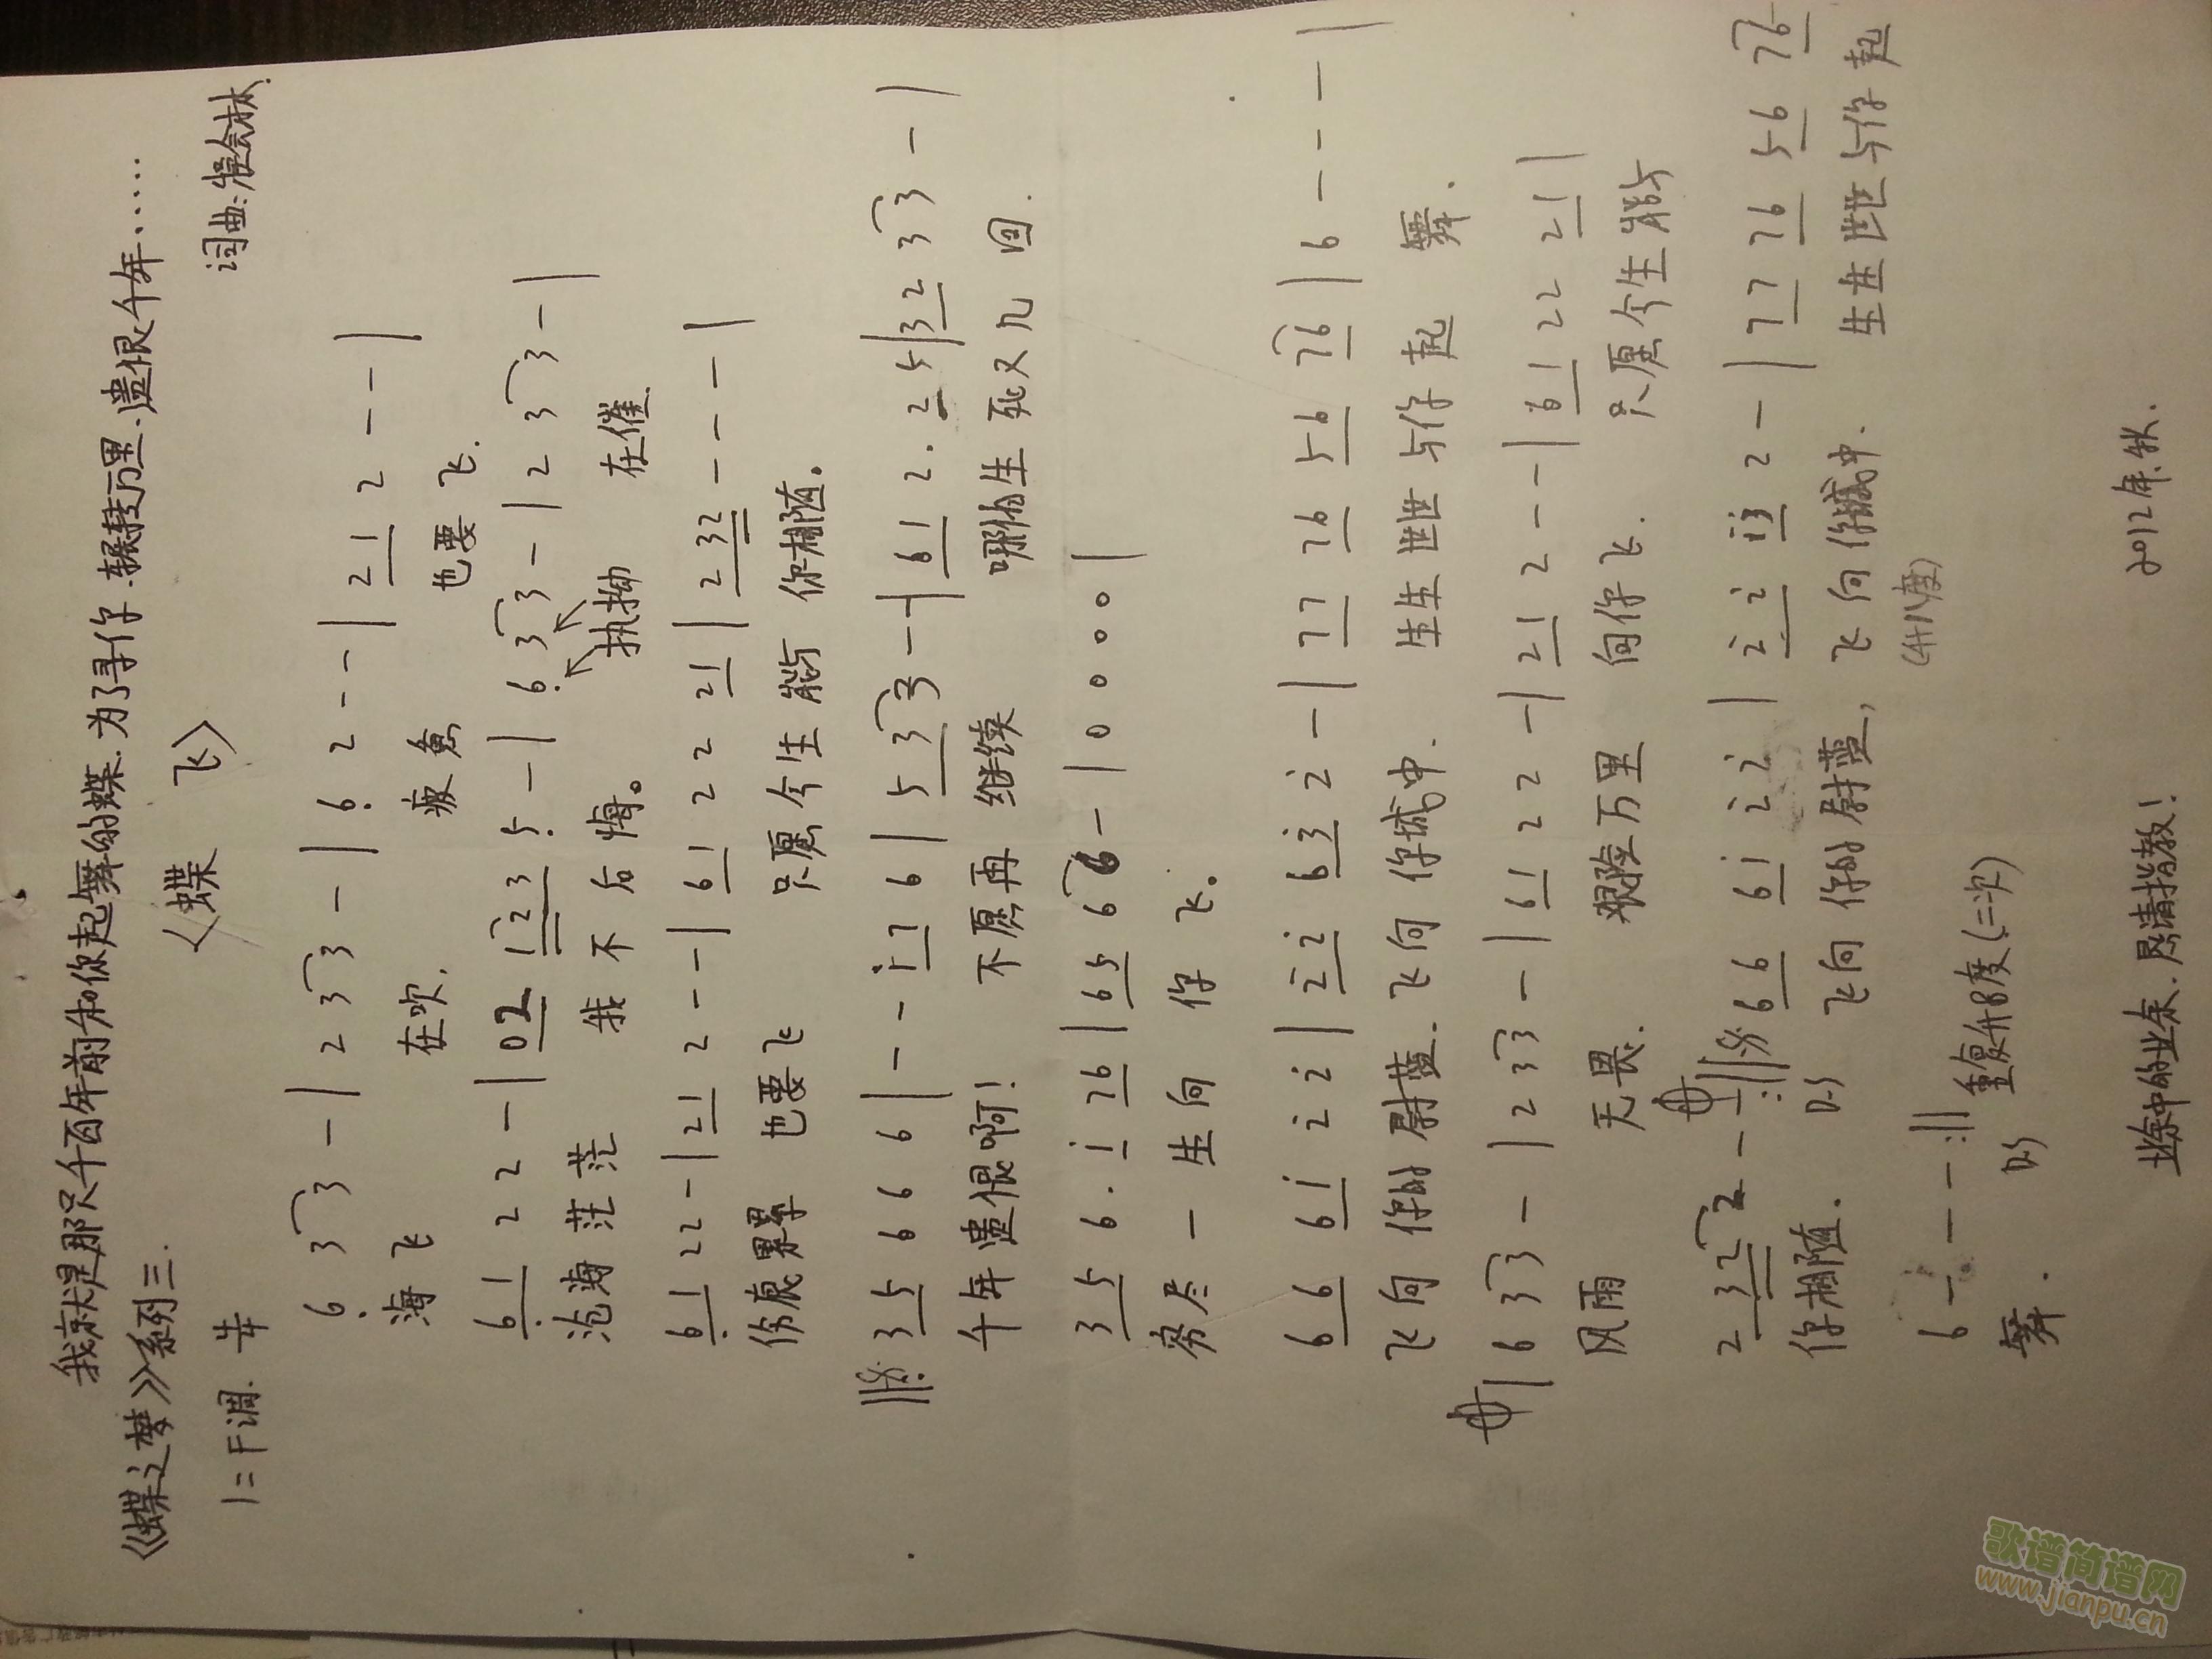 我就是那只千百年前和你起舞的蝶.为了寻你.辗转万里.遗恨千年······
《蝶之梦》系列三.
〈蝶 飞〉
1=F调.
词曲:
6̣ 3 3 - | 2 3 3 - | 6̣ 2 - - | 2 1 2 - - |
海飞 在吹. 疲惫 也要 飞.
6̣ 1 2 2 - | 0 2 1 2 3 5̣ - | 6̣ 3 3 - | 2 3 3 - |
沧海 茫茫 我 不 后 悔。 执拗 在催
6̣ 1 2 2 - | 2 1 2 - - | 6 1 2 2 2 1 | 2 3 2 - - - |
伤痕累累 也要飞 只愿今生 能与 你相随。
3 5 6 6 6 | - - i 7 6 | 5 3 3 - - | 6 1 2. 2 5 | 3 2 3 3 - |
千年遗恨啊! 不愿再 继续 哪怕生 死又几 回.
3 5 6. i 7 6 | 6 5 6 6 - | 0 0 0 0 |
穷尽 一 生向 你 飞。
6 6 6 i 2̇ 2̇ | 2̇ 2̇ 6 3̇ 2̇ - | 7 7 7 6 5 6 7 6 | 6 - - - |
飞向 你的尉蓝. 飞向 你城中. 生生 世世 与你 起 舞.
| 6 3 3 - | 2 3 3 - | 6 1 2 2 - | 2 1 2 - - | 6 1 2 2 2 1 |
风雨 无畏. 艰险万里 向你飞. 只愿今生能与
2 3 2 2 - - :|| 6 6 6 i 2̇ 2̇ | 2̇ 2̇ i 3̇ 2̇ - | 7 7 7 6 5 6 7 6
你相随. D.S 飞向 你的尉蓝, 飞向你城中. 生生世世与你 起
(升八度)
6 - - - :|| 重复升8度(二次)
舞. D.S
业余中的业余.恳请指教!
2012年.秋.
歌谱简谱网
www.jianpu.cn